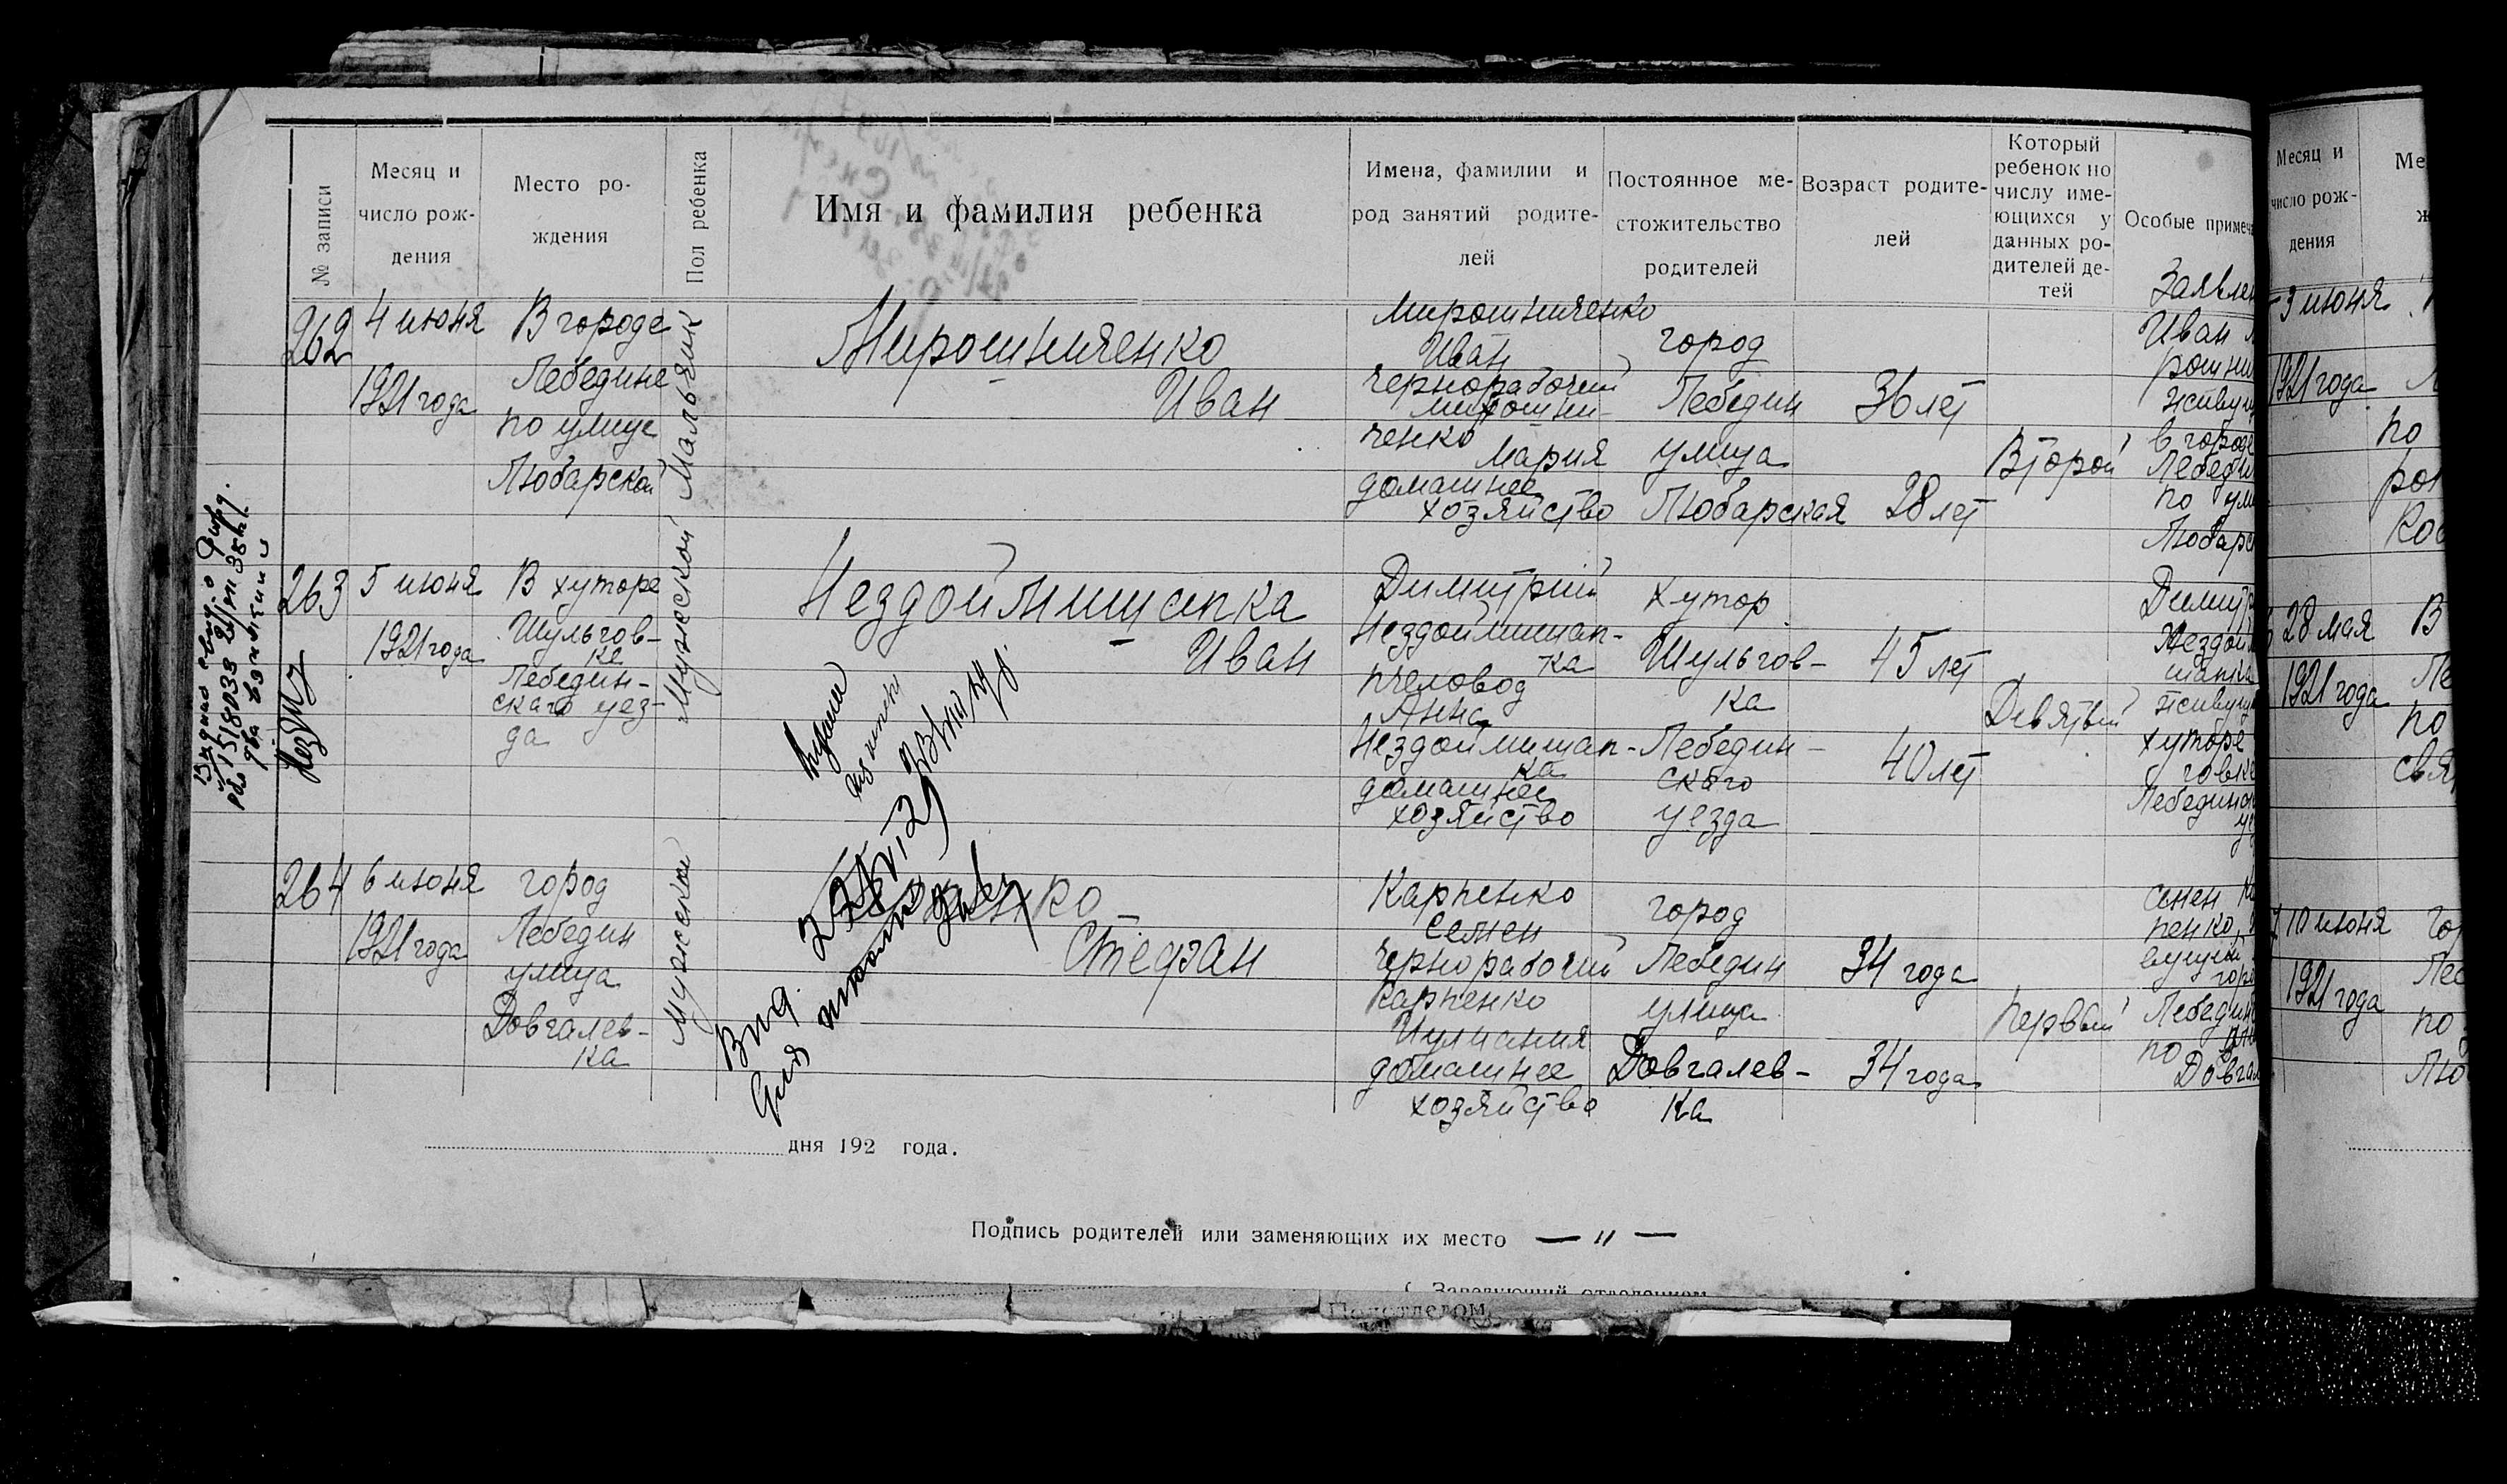 № записи
Месяц и
число рож-
дения
Место ро-
ждения
Пол ребенка
Имя и фамилия ребенка
Имена, фамилии и
род занятий родите-
лей
Постоянное ме-
стожительство
родителей
Возраст родите-
лей
Который
ребенок по
числу име-
ющихся у
данных ро-
дителей де-
тей
Особые примеч
262
4 июня
1921 года
В городе
Лебедине
по улице
Любарской
Мальчик
Мирошниченко
Иван
Мирошниченко
Иван
чернорабочий
Мирошни-
ченко
Мария
домашнее
хозяйство
город
Лебедин
улица
Любарская
36 лет
28 лет
Второй
Заявлен
Иван М
рошни
живущ
в городе
Лебедин
по ули
Любарс
263
5 июня
1921 года
В хуторе
Шульгов-
ке
Лебедин-
скаго уез-
да
Мужеской
Нездоймишапка
Иван
Димитрий
Нездоймишап-
ка
пчеловод
Анна
Нездоймишап-
ка
домашнее
хозяйство
хутор
Шульгов-
ка
Лебедин-
скаго
уезда
45 лет
40 лет
Девятый
Димитр
Нездойм
шапка
живущ
хуторе
говке
Лебединск
уе
264
6 июня
1921 года
город
Лебедин
улица
Довгалев-
ка
Мужеской
Стефан
Карпенко
Семен
чернорабочий
Карпенко
Иулиания
домашнее
хозяйство
город
Лебедин
улица
Довгалев-
ка
34 года
34 года
Первый
Семен Ка
пенко,
город
Лебедин
по
Довгал
Вид.
для школы
дня 192 года.
Подпись родителей или заменяющих их место — " —
Заведующий отделением
Подотделом
Месяц и
число рож-
дения
Ме
ж
3 июня
1921 года
по
28 мая
1921 года
В
Ле
по
свя
10 июня
1921 года
гор
Лес
по
Лю